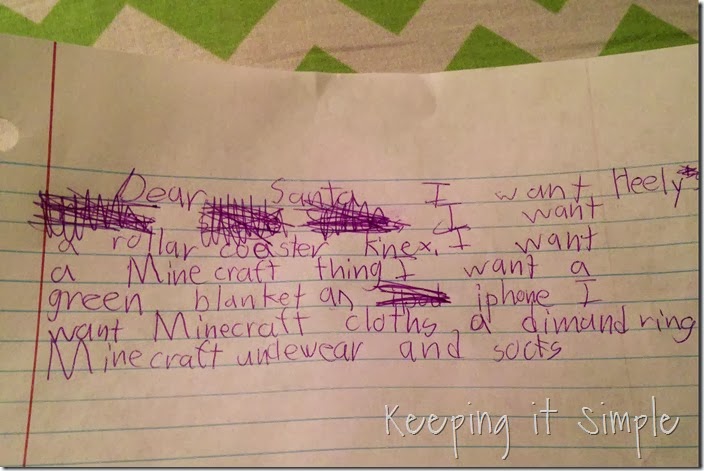 Dear Santa I want Heely's
I want
a rollar coaster knex. I want
a Minecraft thing I want a
green blanket an iphone I
want Minecraft cloths a dimand ring
Minecraft undewear and socks
Keeping it Simple